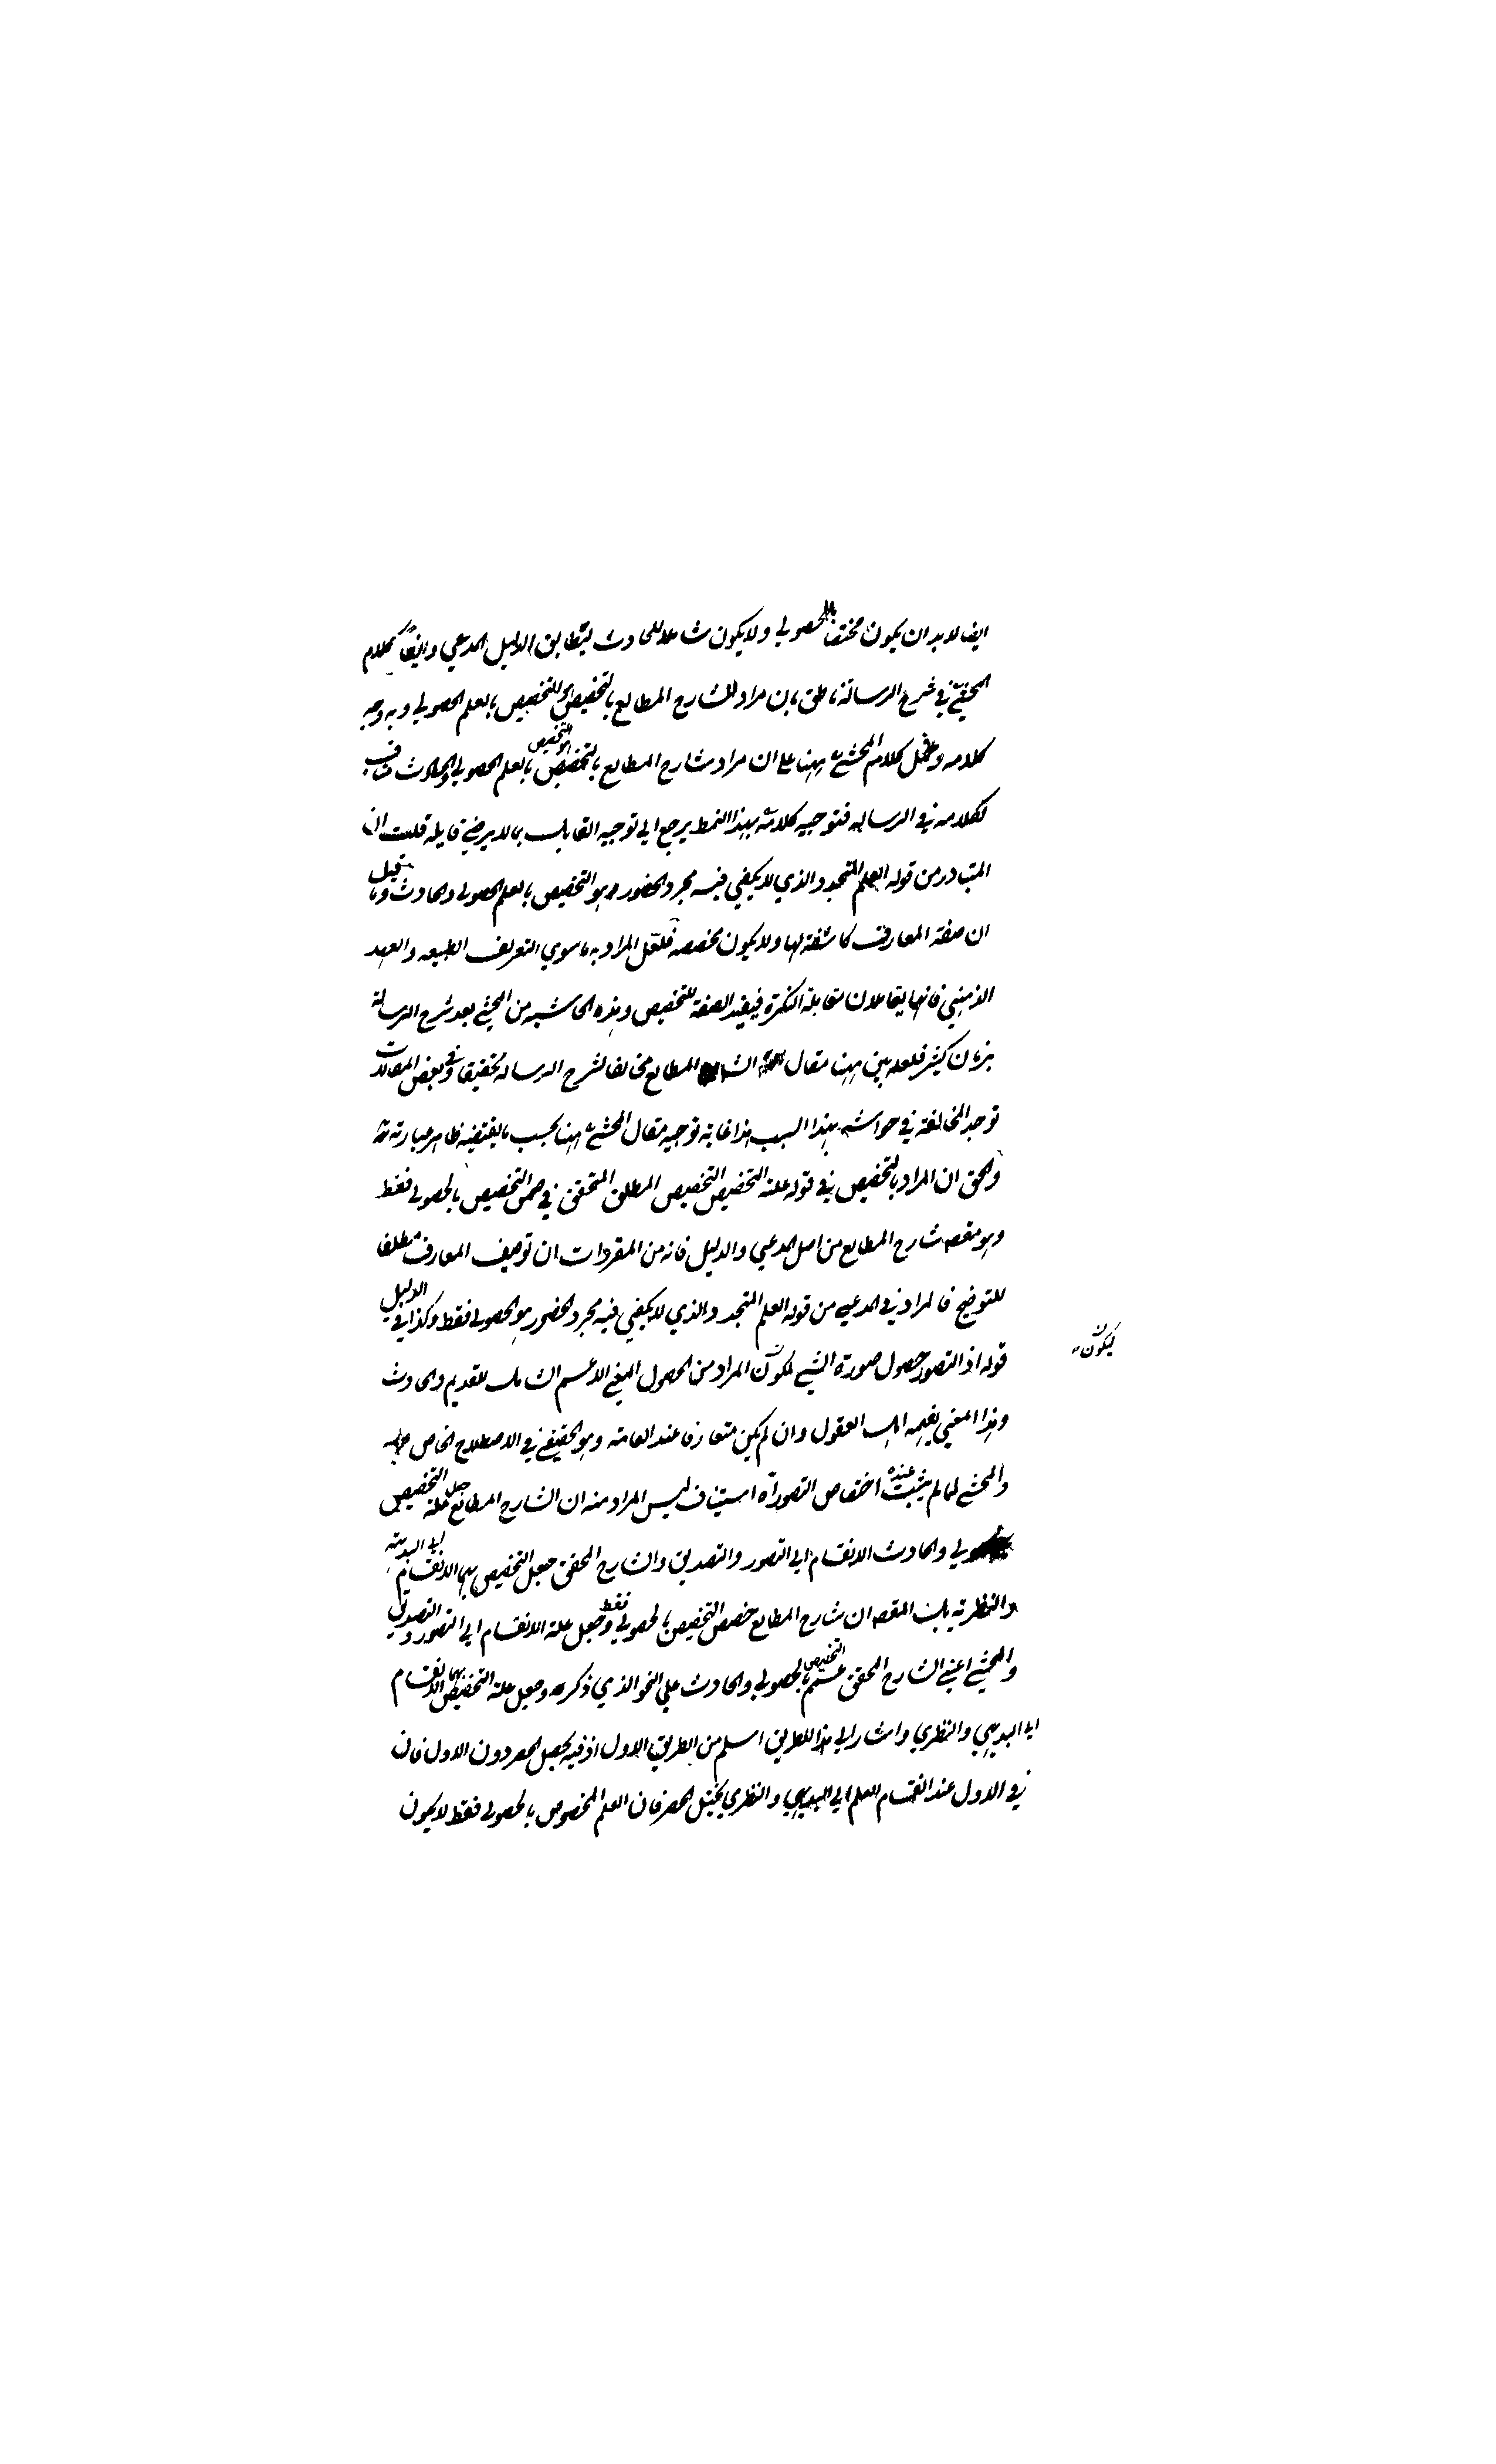 ايضا لا بد ان يكون مختصا بالحصولي ولا يكون شاملا للحادث ليتطابق الدليل المدعي وايضا كلام
المحشي في شرح الرسالة ناطق بان مراد الشارح المطالع بالتخصيص هو التخصيص بالعلم الحصولي وبه وجه
كلامه وحمل كلام المحشي ههنا علي ان مراد شارح المطالع بالتخصيص هو التخصيص بالعلم الحصولي والحادث مناف
لكلامه في الرساله فتوجيه كلامه بهذا النمط يرجع الي توجيه القايل بما لا يرضي قايله قلت ان
المتبادر من قوله العلم المتجدد الذي لا يكفي فيه مجرد الحضور وهو التخصيص بالعلم الحصولي والحادث وما قيل
ان صفة المعارف كاشفة لها ولا يكون مخصصه فلعل المراد به ما سوي التعريف الطبيعه والعهد
الذهني فانها يقابلان مقابلة النكرة فيفيد الصفة للتخصيص وهذه الحاشيه من المحشي بعد شرح الرسالة
بزمان كثير فلعله بين ههنا مقال المطالع مخالفا لشرح الرساله تحقيقا وفي بعض المقالات
توجد المخالفة في حواشيه بهذا السبب هذا غاية توجيه مقال المحشي ههنا بحسب ما يقتضيه ظاهر عبارته
والحق ان المراد بالتخصيص في قوله علة التخصيص التخصيص المطلق المتحقق في ضمن التخصيص بالحصولي فقط
وهو مقصد شارح المطالع من اصل المدعي والدليل فانه من المقررات ان توصيف المعارف مطلقا
للتوضيح فالمراد في المدعي من قوله العلم المتجدد الذي لا يكفي فيه مجرد الحضور هو الحصولي فقط وكذا في الدليل
قوله اذ التصور حصول صورة الشي لكون المراد من الحصول المعني الاعم الشامل للقديم والحادث
ليكون
وهذا المعني يفهمه اهل العقول وان لم يكن متعارفا عند العامة وهو الحقيقي في الاصطلاح الخاص
والمحشي لما لم يثبت عنده اختصاص التصور آه استيناف ليس المراد منه ان الشارح المطالع جعل علة التخصيص
بالحصولي والحادث الانقسام الي التصور والتصديق والشارح المحقق جعل التخصيص بهما الانقسام الي البديهة
والنظرية بل المقصد ان شارح المطالع خصص التخصيص بالحصولي فقط وجعل علة الانقسام الي التصور والتصديق
والمحشي اعني الشارح المحقق عمم التخصيص بالحصولي والحادث علي النحو الذي ذكره وجعل علة التخصيص بهما الانقسام
الي البديهي والنظري واشار الي هذا الطريق اسلم من الطريق الاول اذ فيه يحصل الحصر دون الاول فان
في الاول عند انقسام العلم الي البديهي والنظري يختل الحصر فان العلم المخصوص بالحصولي فقط لا يكون